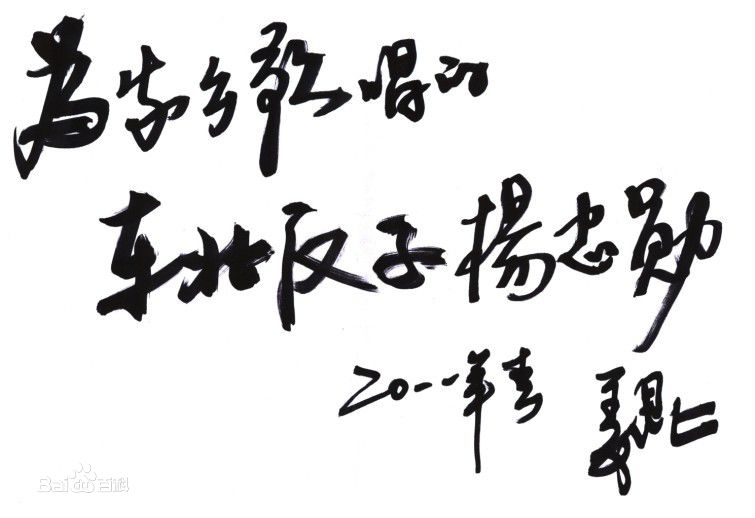 為家乡歌唱的
东北汉子楊忠勋
二0一一年春 姜昆
Bai百科